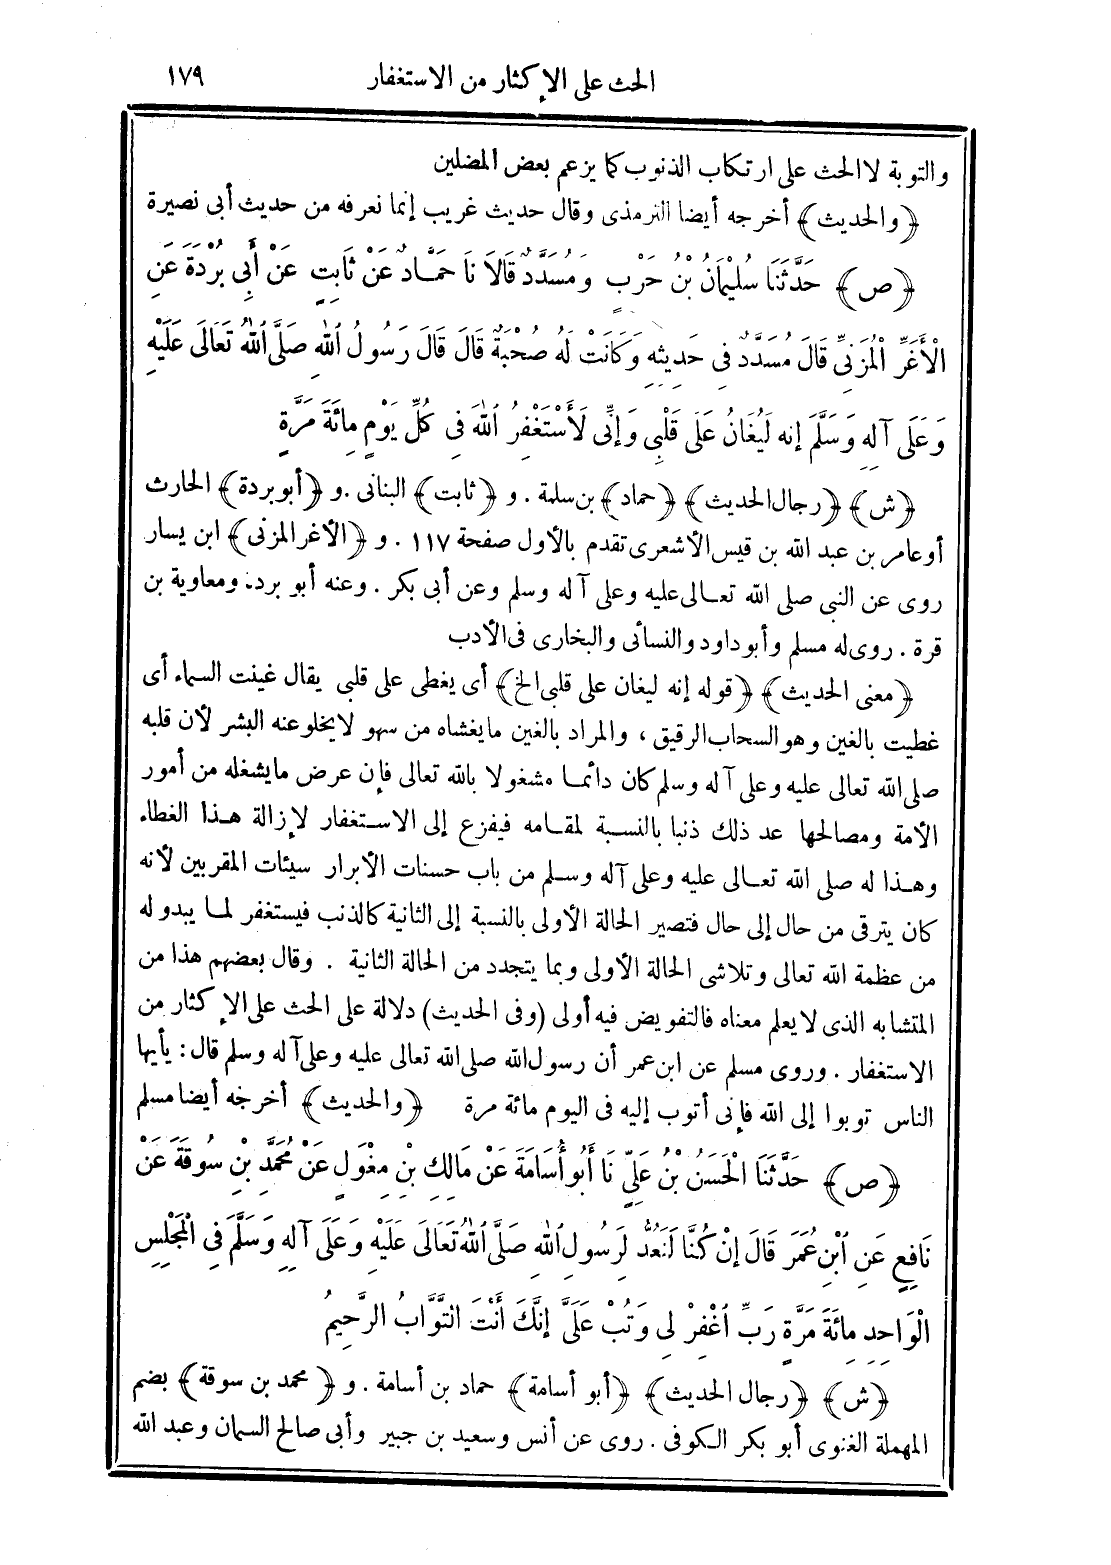 الحث على الإكثار من الاستغفار ١٧٩
والتوبة لا الحث على ارتكاب الذنوب كما يزعم بعض المضلين
﴿والحديث﴾ أخرجه أيضا الترمذى وقال حديث غريب إنما نعرفه من حديث أبى نصيرة
﴿ص﴾ حَدَّثَنَا سُلَيْمَانُ بْنُ حَرْبٍ وَمُسَدَّدٌ قَالَا نَا حَمَّادٌ عَنْ ثَابِتٍ عَنْ أَبِى بُرْدَةَ عَنِ
الْأَغَرِّ الْمُزَنِىِّ قَالَ مُسَدَّدٌ فِى حَدِيثِهِ وَكَانَتْ لَهُ صُحْبَةٌ قَالَ قَالَ رَسُولُ اللهِ صَلَّى اللهُ تَعَالَى عَلَيْهِ
وَعَلَى آلِهِ وَسَلَّمَ إنه لَيُغَانُ عَلَى قَلْبِى وَإِنِّى لَأَسْتَغْفِرُ اللهَ فِى كُلِّ يَوْمٍ مِائَةَ مَرَّةٍ
﴿ش﴾ ﴿رجال الحديث﴾ ﴿حماد﴾ بن سلمة . و ﴿ثابت﴾ البنانى . و ﴿أبو بردة﴾ الحارث
أو عامر بن عبد الله بن قيس الأشعرى تقدم بالأول صفحة ١١٧ . و ﴿الأغر المزنى﴾ ابن يسار
روى عن النبى صلى الله تعالى عليه وعلى آله وسلم وعن أبى بكر . وعنه أبو بردة ومعاوية بن
قرة . روى له مسلم وأبو داود والنسائى والبخارى فى الأدب
﴿معنى الحديث﴾ ﴿قوله إنه ليغان على قلبى الخ﴾ أى يغطى على قلبى يقال غينت السماء أى
غطيت بالغين وهو السحاب الرقيق ، والمراد بالغين ما يغشاه من سهو لا يخلو عنه البشر لأن قلبه
صلى الله تعالى عليه وعلى آله وسلم كان دائما مشغولا بالله تعالى فإن عرض ما يشغله من أمور
الأمة ومصالحها عد ذلك ذنبا بالنسبة لمقامه فيفزع إلى الاستغفار لإزالة هذا الغطاء
وهذا له صلى الله تعالى عليه وعلى آله وسلم من باب حسنات الأبرار سيئات المقربين لأنه
كان يترقى من حال إلى حال فتصير الحالة الأولى بالنسبة إلى الثانية كالذنب فيستغفر لما يبدو له
من عظمة الله تعالى وتلاشى الحالة الأولى وبما يتجدد من الحالة الثانية . وقال بعضهم هذا من
المتشابه الذى لا يعلم معناه فالتفويض فيه أولى (وفى الحديث) دلالة على الحث على الإكثار من
الاستغفار . وروى مسلم عن ابن عمر أن رسول الله صلى الله تعالى عليه وعلى آله وسلم قال : يأيها
الناس توبوا إلى الله فإنى أتوب إليه فى اليوم مائة مرة ﴿والحديث﴾ أخرجه أيضا مسلم
﴿ص﴾ حَدَّثَنَا الْحَسَنُ بْنُ عَلِىٍّ نَا أَبُو أُسَامَةَ عَنْ مَالِكِ بْنِ مِغْوَلٍ عَنْ مُحَمَّدِ بْنِ سُوقَةَ عَنْ
نَافِعٍ عَنِ ابْنِ عُمَرَ قَالَ إِنْ كُنَّا لَنَعُدُّ لِرَسُولِ اللهِ صَلَّى اللهُ تَعَالَى عَلَيْهِ وَعَلَى آلِهِ وَسَلَّمَ فِى الْمَجْلِسِ
الْوَاحِدِ مِائَةَ مَرَّةٍ رَبِّ اغْفِرْ لِى وَتُبْ عَلَىَّ إِنَّكَ أَنْتَ التَّوَّابُ الرَّحِيمُ
﴿ش﴾ ﴿رجال الحديث﴾ ﴿أبو أسامة﴾ حماد بن أسامة . و ﴿محمد بن سوقة﴾ بضم
المهملة الغنوى أبو بكر الكوفى . روى عن أنس وسعيد بن جبير وأبى صالح السمان وعبد الله